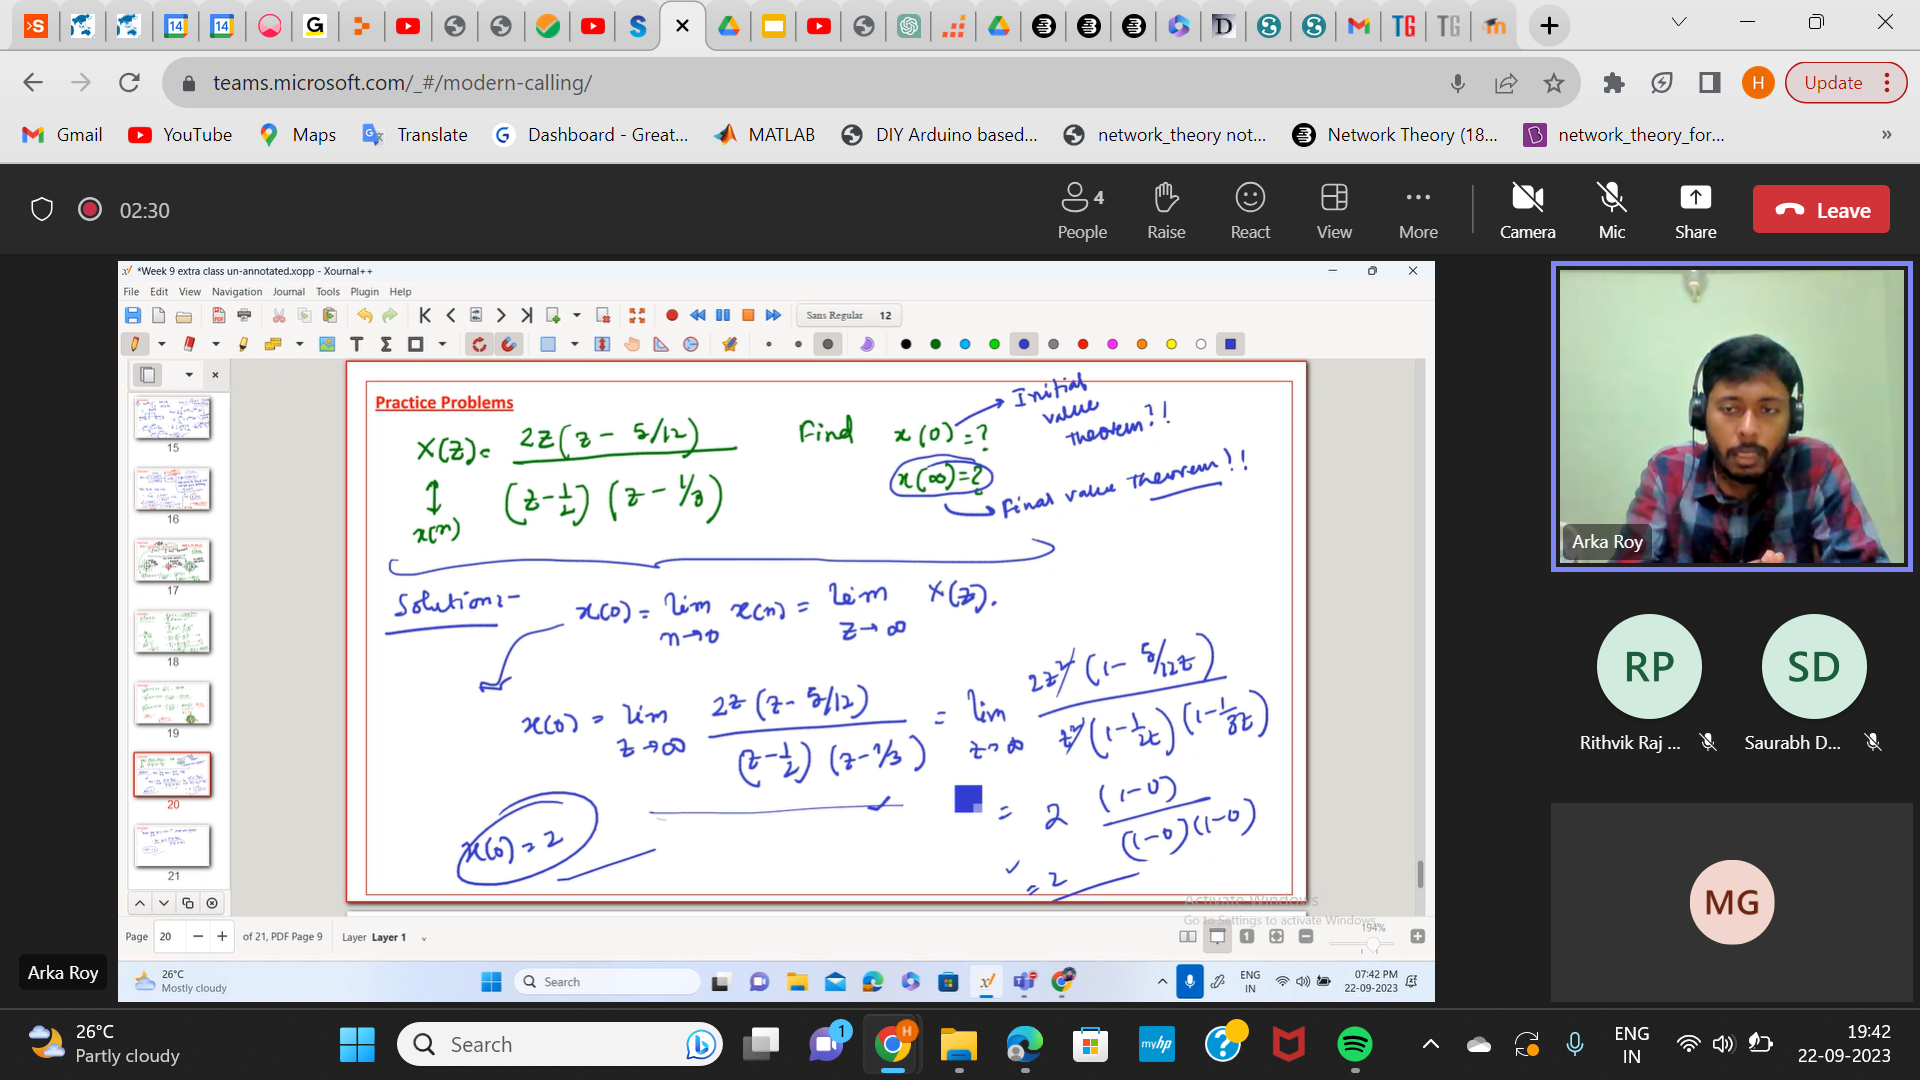 teams.microsoft.com/_#/modern-calling/
H
Update
Gmail
YouTube
Maps
Translate
Dashboard - Great...
MATLAB
DIY Arduino based...
network_theory not...
Network Theory (18...
network_theory_for...
»
02:30
4
People
Raise
React
View
More
Camera
Mic
Share
Leave
*Week 9 extra class un-annotated.xopp - Xournal++
File Edit View Navigation Journal Tools Plugin Help
Sans Regular 12
15
16
17
18
19
20
21
Practice Problems
X(z) = 2z(z - 5/12) / (z - 1/2) (z - 1/3)
↕
x(n)
Find x(0) = ?
x(∞) = ?
Initial
value
theorem?!
Final value Theorem!!
Solution:-
x(0) = lim n→0 x(n) = lim z→∞ X(z).
x(0) = lim z→∞ 2z (z - 5/12) / (z - 1/2) (z - 1/3) = lim z→∞ 2z² (1 - 5/12z) / z² (1 - 1/2z) (1 - 1/3z)
= 2 (1-0) / (1-0)(1-0)
= 2
x(0) = 2
Activate Windows
Go to Settings to activate Windows.
Page 20 of 21, PDF Page 9 Layer Layer 1
194%
26°C
Mostly cloudy
Search
ENG
IN
07:42 PM
22-09-2023
Arka Roy
Arka Roy
RP
Rithvik Raj ...
SD
Saurabh D...
MG
26°C
Partly cloudy
Search
1
H
myhp
ENG
IN
19:42
22-09-2023